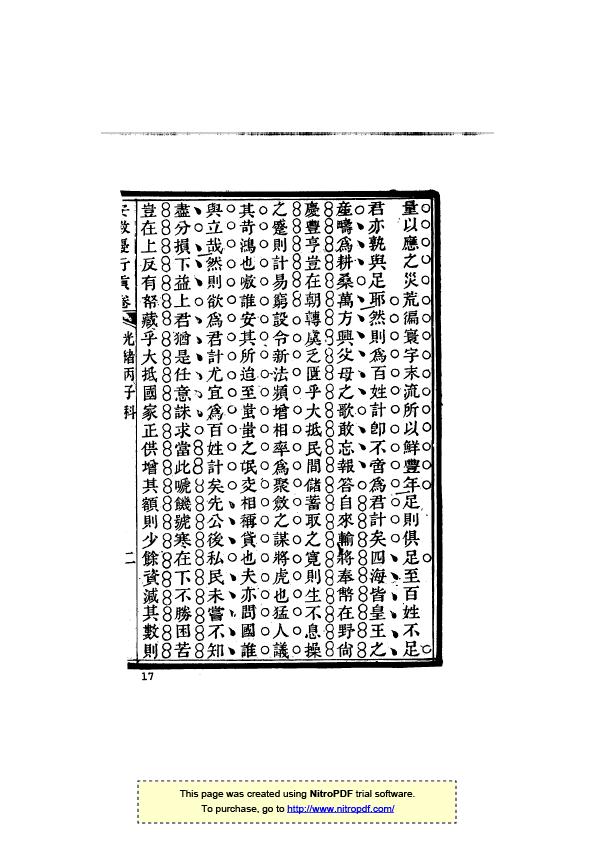 量以應之災荒徧寰宇末流所以鮮豐年足則俱足至百姓不足
君亦孰與足耶然則爲百姓計卽不啻爲君計矣四海皆皇王之
產疇爲耕桑萬方興父母之歌敢忘報答自來輸將奉幣在野尙
慶豐亨豈在朝轉虞乏匱乎大抵民間儲蓄取之寬則生不息操
之蹙則計易窮設令新法頻增相率爲聚斂之謀將虎也猛人議
其苛鴻也嗷誰安其所迫至蚩蚩之氓交相稱貸也夫亦問國誰
與立哉然則欲爲君計尤宜爲百姓計矣先公後私民未嘗不知
盡分損下益上君猶是任意誅求當此嗁饑號寒在下不勝困苦
豈在上反有帑藏乎大抵國家正供增其額則少餘資減其數則
卷 光緒丙子科 二
17
This page was created using NitroPDF trial software.
To purchase, go to http://www.nitropdf.com/